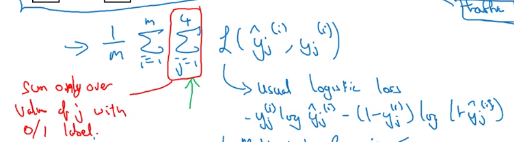 → 1/m Σ_{i=1}^{m} Σ_{j=1}^{4} L(ŷ_j^{(i)}, y_j^{(i)})
Sum only over
value of j with
0/1 label.
usual logistic loss
- y_j^{(i)} log ŷ_j^{(i)} - (1-y_j^{(i)}) log (1-ŷ_j^{(i)})